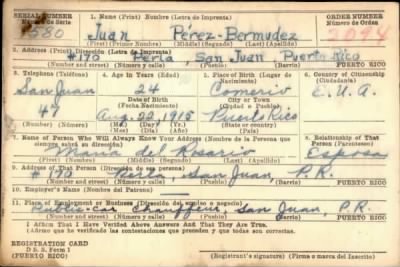 SERIAL NUMBER 1. Name (Print) Nombre (Letra de Imprenta) ORDER NUMBER
Número de Serie Número de Orden
580 Juan Pérez-Bermudez 2094
(First) (Primer Nombre) (Middle) (Segundo) (Last) (Apellido)
2. Address (Print) Dirección (Letra de Imprenta)
#170 Perla, San Juan Puerto Rico
(Number and street) (Número y calle) (Town) (Pueblo) PUERTO RICO
3. Telephone (Teléfono) 4. Age in Years (Edad) 5. Place of Birth (Lugar de Nacimiento) 6. Country of Citizenship (Ciudadanía)
San Juan 24 Comerio E.U.A.
Date of Birth City or Town
(Fecha Nacimiento) (Ciudad o Pueblo)
47 Aug. 22, 1915 Puerto Rico
(Number) (Número) (Mo.) (Mes) (Day) (Día) (Yr.) (Año) (State or country) (Estado o país)
7. Name of Person Who Will Always Know Your Address (Nombre de la Persona que siempre sabrá su dirección) 8. Relationship of That Person (Parentesco)
Maria del Rosario Esposa
(First) (Nombre) (Middle) (Segundo) (Last) (Apellido)
9. Address of That Person (Dirección de esa persona)
Perla, San Juan, P.R.
(Number and street) (Número y calle) (Town) (Pueblo) PUERTO RICO
10. Employer's Name (Nombre del Patrono)
11. Place of Employment or Business (Dirección del empleo o negocio)
Public-car Chauffeur, San Juan, P.R.
(Number and street) (Número y calle) (Town) (Pueblo) PUERTO RICO
I Affirm That I Have Verified Above Answers And That They Are True.
(Afirmo que he verificado las contestaciones que preceden y que todas son correctas.
REGISTRATION CARD
D.S.S. Form 1
(PUERTO RICO)
(Registrant's signature) (Firma o marca del Inscrito)